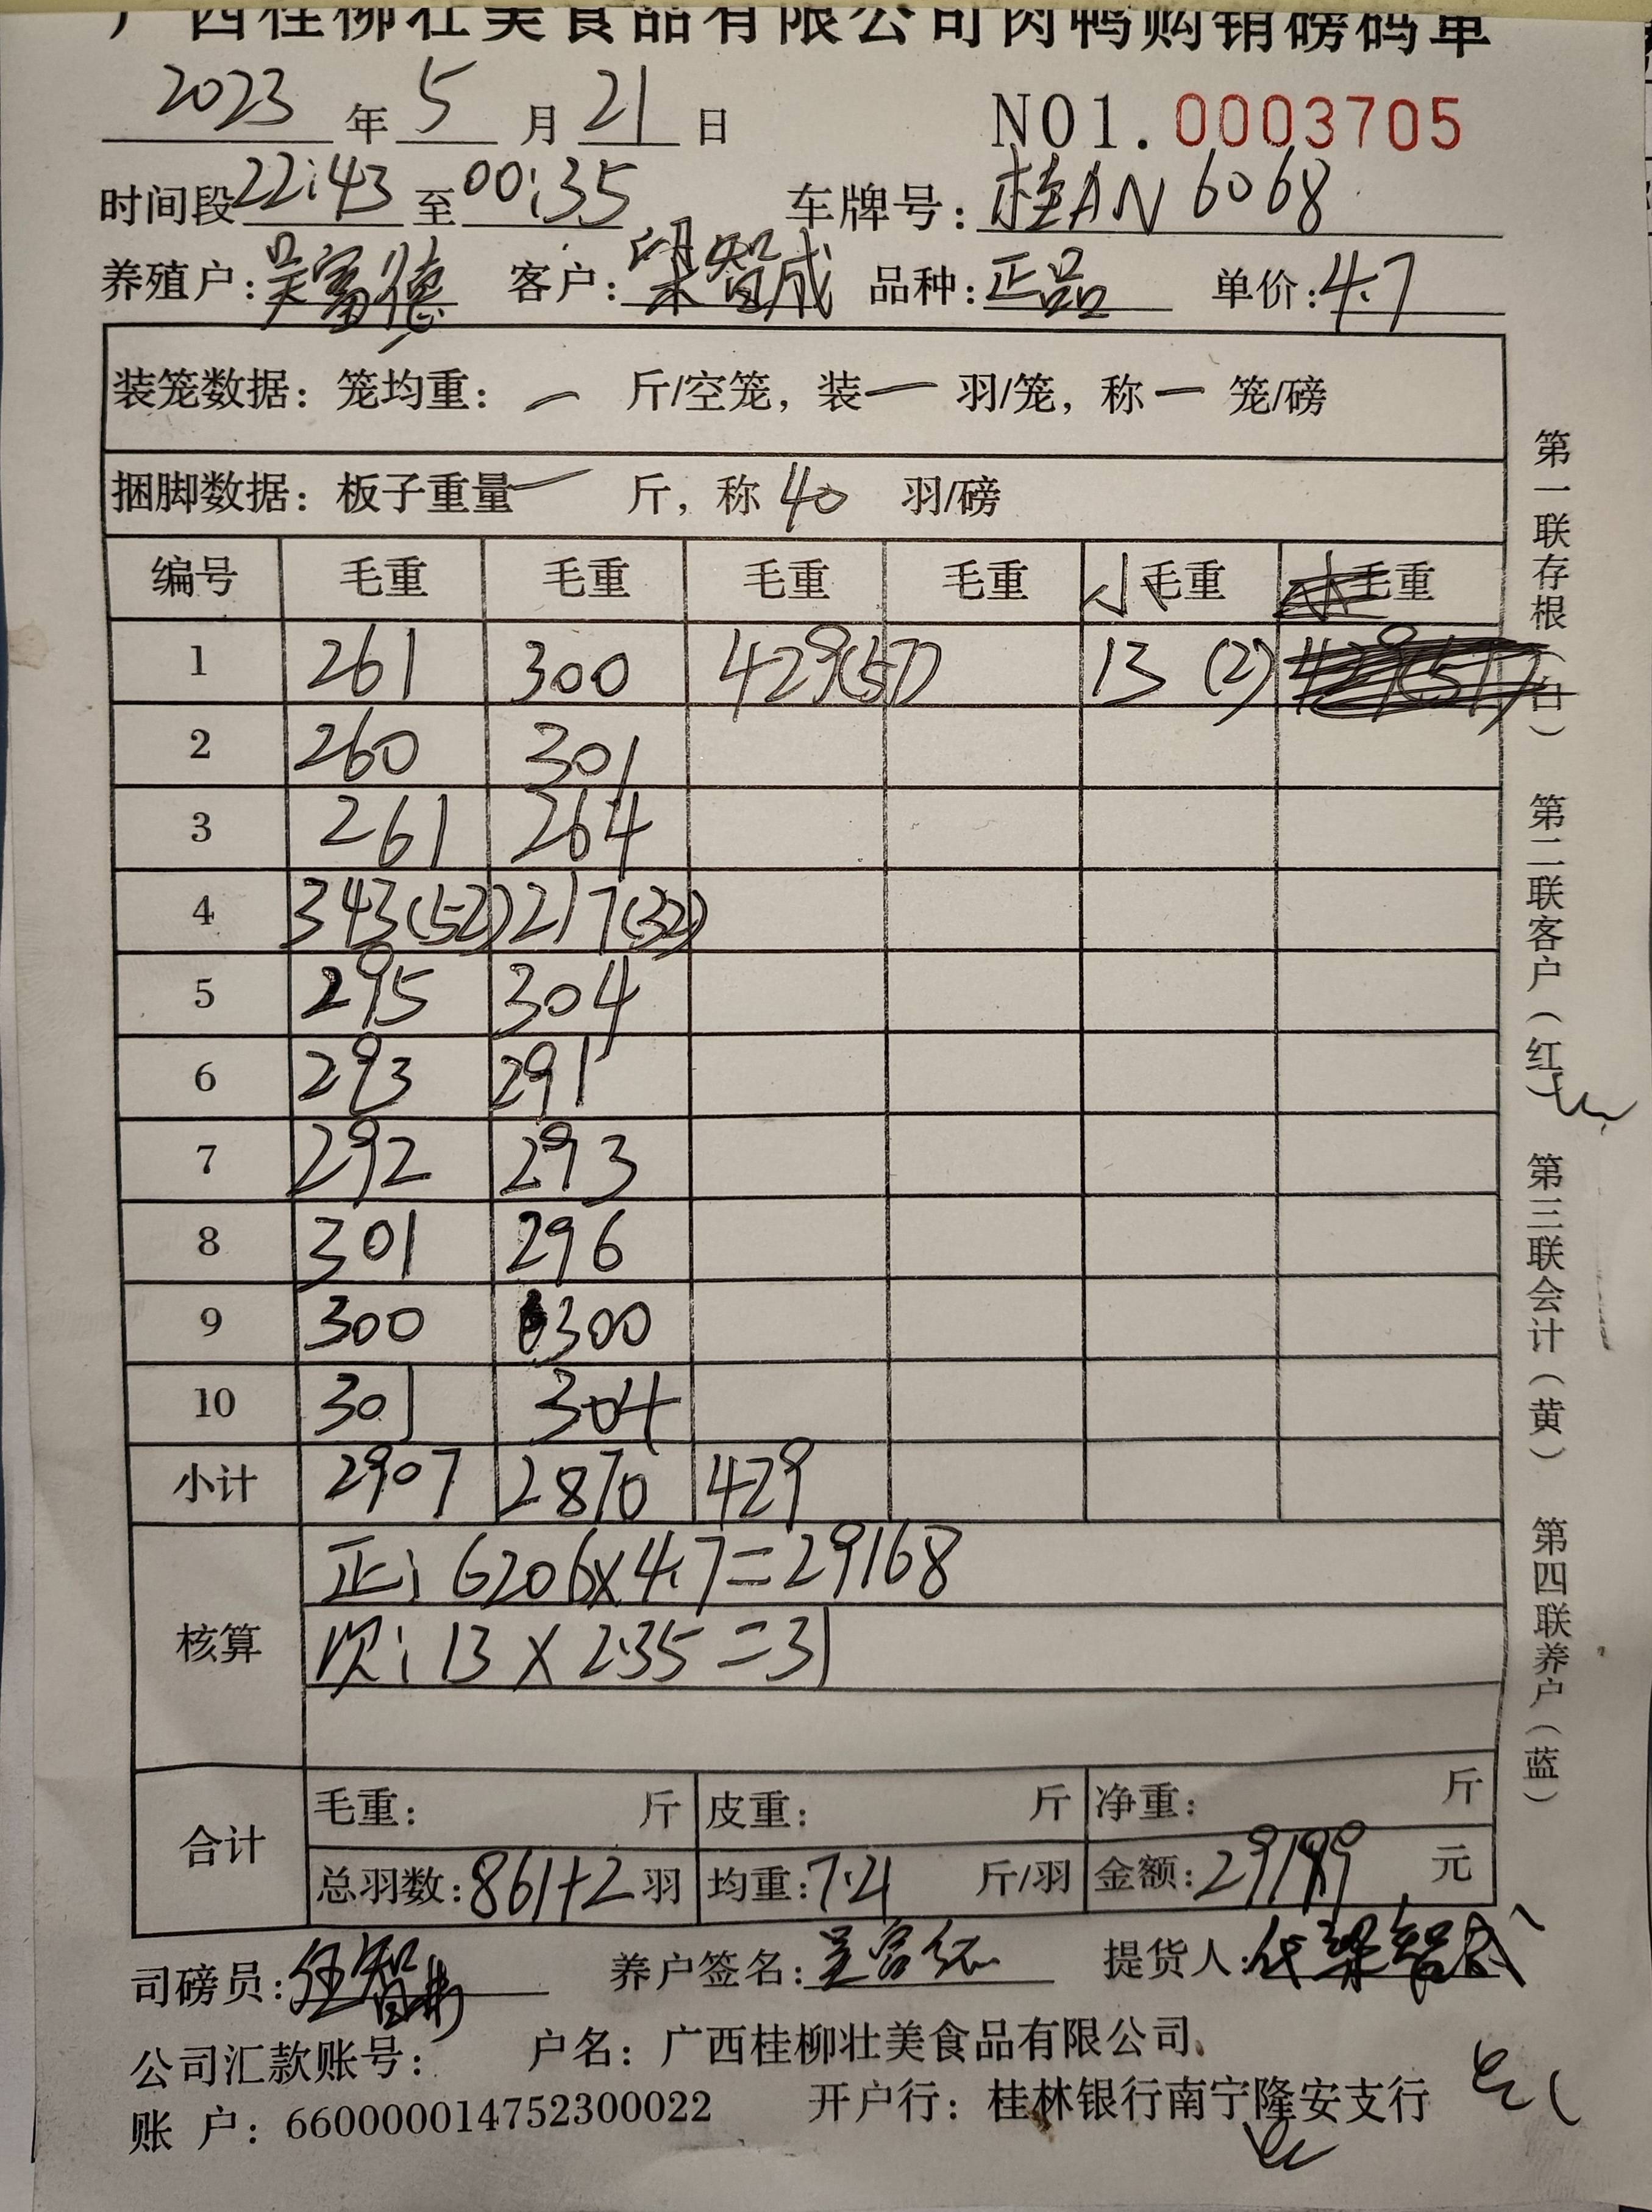 广西桂柳壮美食品有限公司肉鸭购销磅码单
2023 年 5 月 21 日 NO1. 0003705
时间段 22:43 至 00:35 车牌号: 桂AN6068
养殖户: 吴富德 客户: 梁智成 品种: 正品 单价: 4.7
装笼数据: 笼均重: 一 斤/空笼, 装 一 羽/笼, 称 一 笼/磅
捆脚数据: 板子重量 一 斤, 称 40 羽/磅
编号 毛重 毛重 毛重 毛重 小毛重 毛重
1 261 300 429(57) 13 (2) 429(57)
2 260 301
3 261 264
4 343(52) 217(32)
5 295 304
6 293 291
7 292 293
8 301 296
9 300 300
10 301 304
小计 2907 2870 429
核算
正: 6206×4.7=29168
次: 13×2.35=31
合计
毛重: 斤 皮重: 斤 净重: 斤
总羽数: 861+2 羽 均重: 7.21 斤/羽 金额: 29199 元
司磅员: 养户签名: 提货人: 代梁智成
公司汇款账号: 户名: 广西桂柳壮美食品有限公司
账 户: 660000014752300022 开户行: 桂林银行南宁隆安支行
第一联存根(白) 第二联客户(红) 第三联会计(黄) 第四联养户(蓝)